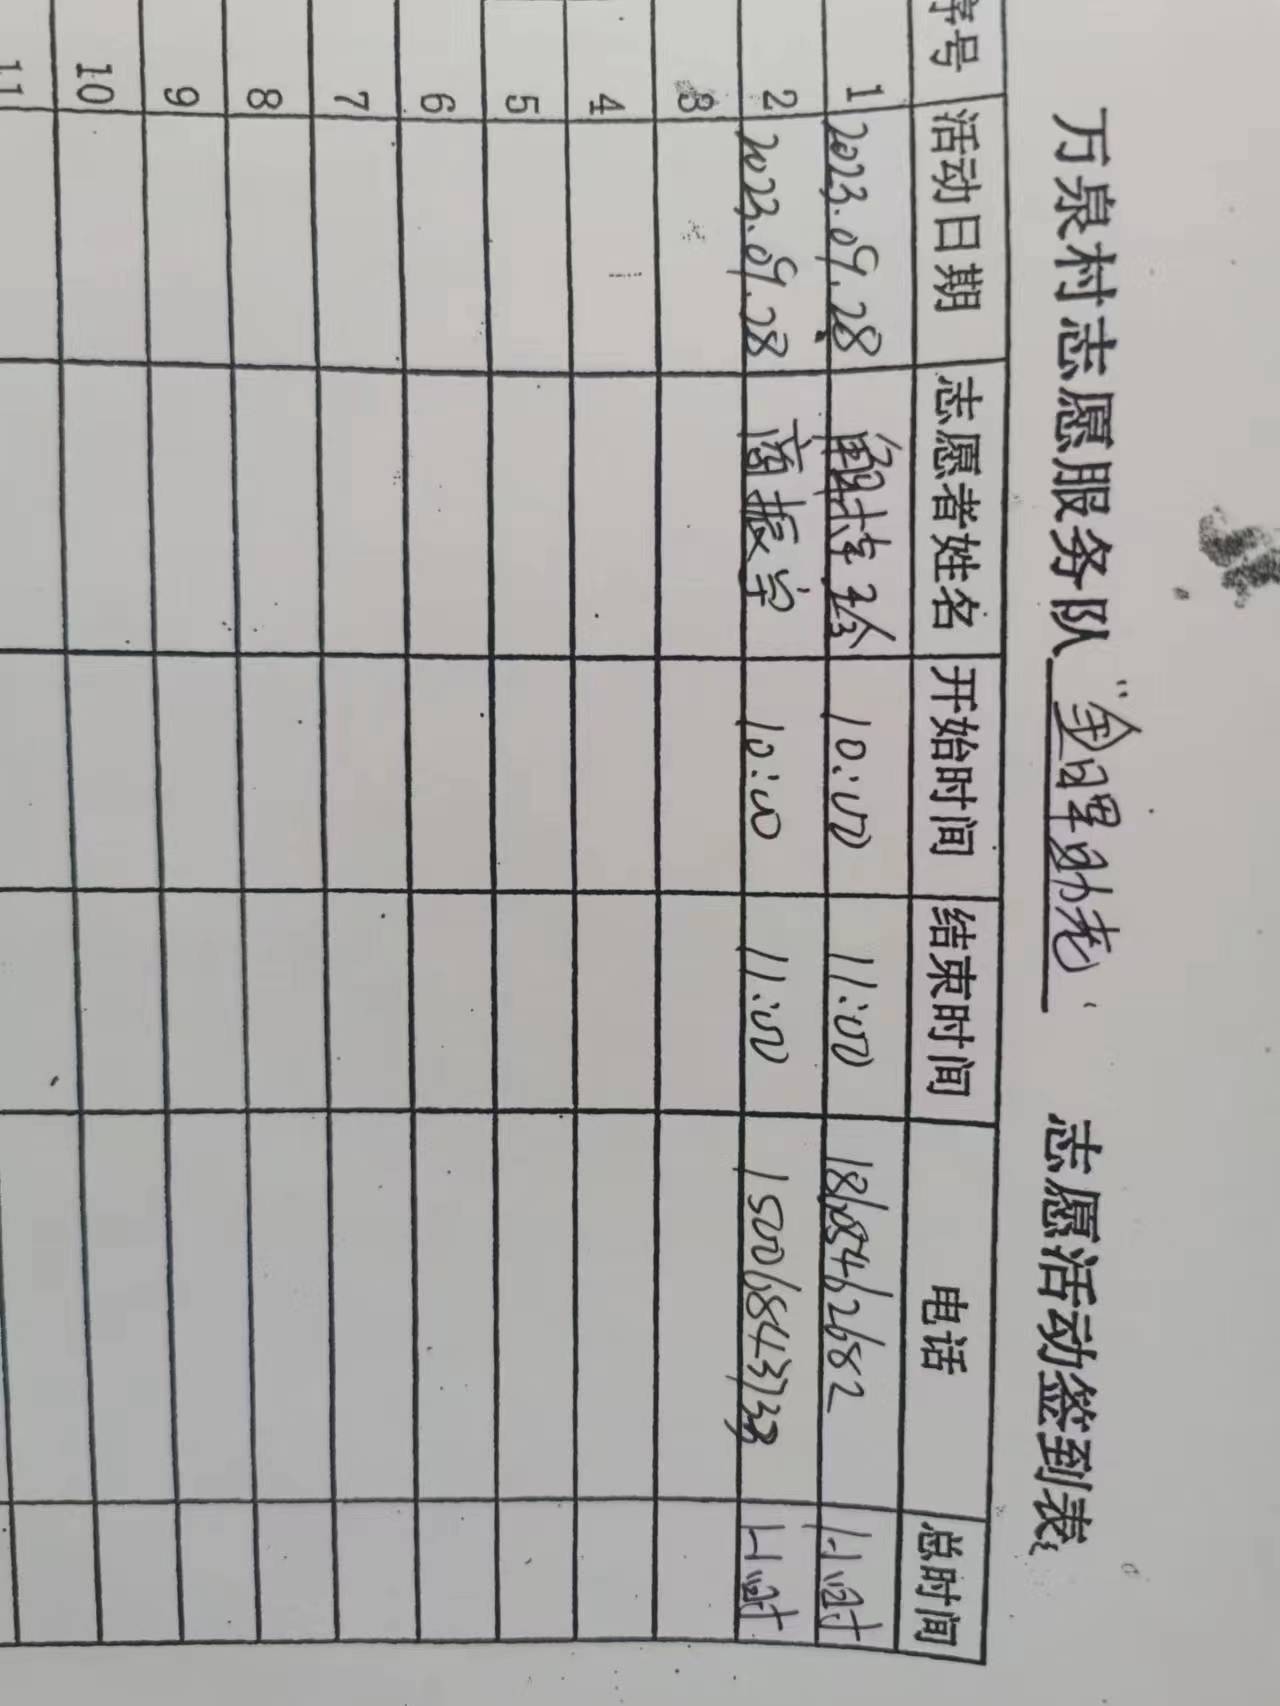 万泉村志愿服务队“金晖助老” 志愿活动签到表
序号 活动日期 志愿者姓名 开始时间 结束时间 电话 总时间
1 2023.09.28 10:00 11:00 18605462682 1小时
2 2023.09.28 商振宇 10:00 11:00 15006843733 1小时
3
4
5
6
7
8
9
10
11